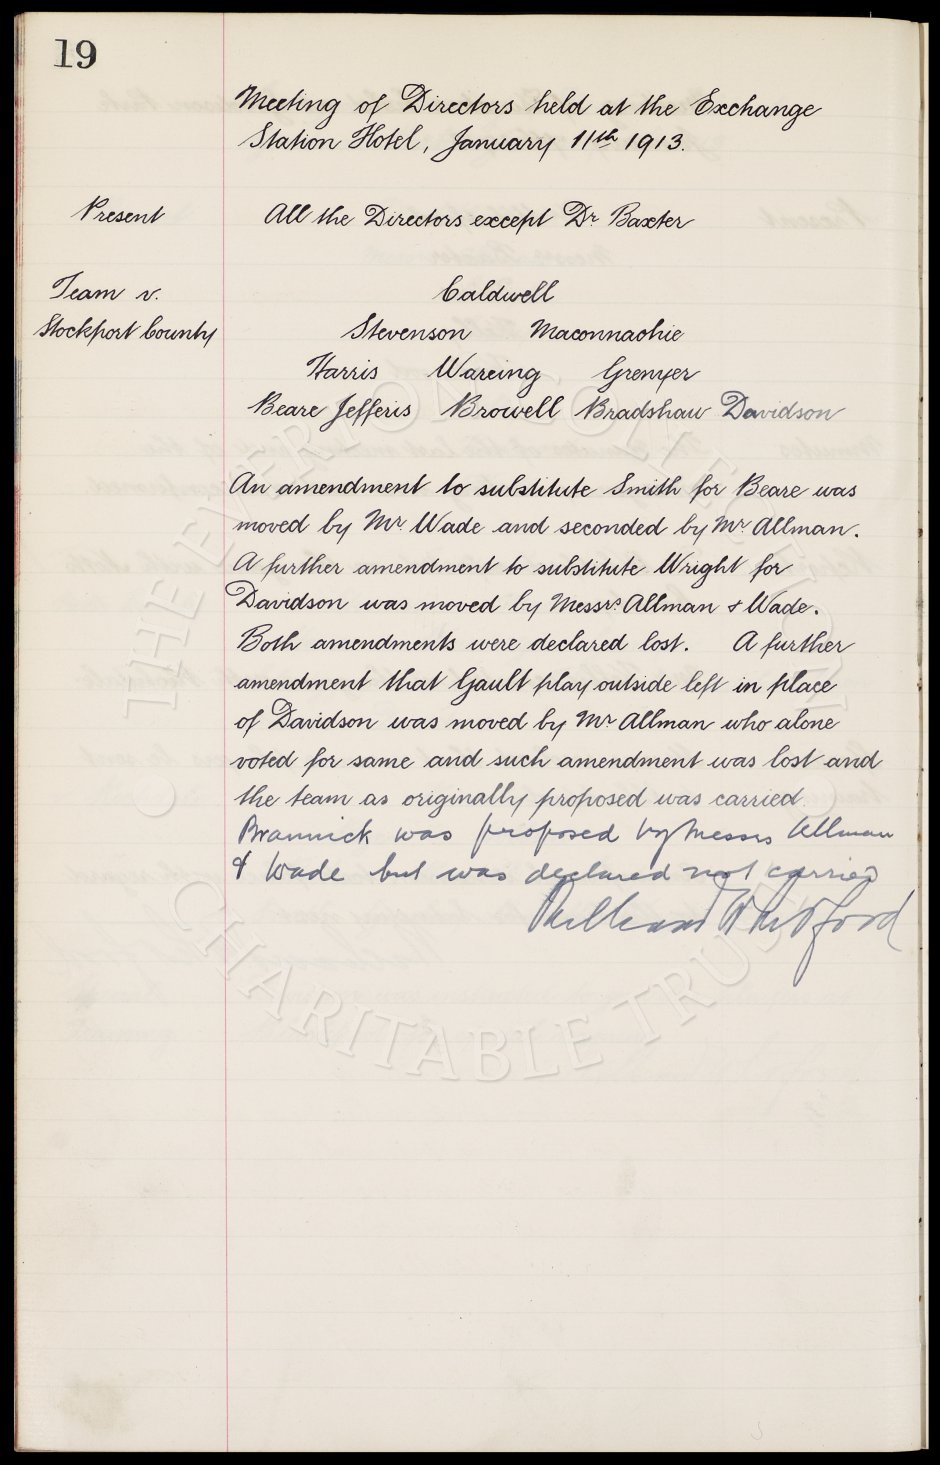 19
Meeting of Directors held at the Exchange
Station Hotel, January 11th 1913.
Present
All the Directors except Dr. Baxter
Team v.
Stockport County
Caldwell
Stevenson Maconnachie
Harris Wareing Grenyer
Beare Jefferis Browell Bradshaw Davidson
An amendment to substitute Smith for Beare was
moved by Mr. Wade and seconded by Mr. Allman.
A further amendment to substitute Wright for
Davidson was moved by Messrs. Allman & Wade.
Both amendments were declared lost. A further
amendment that Gault play outside left in place
of Davidson was moved by Mr. Allman who alone
voted for same and such amendment was lost and
the team as originally proposed was carried.
Brannick was proposed by Messrs Allman
& Wade but was declared not carried
© THE EVERTON COLLECTION
© CHARITABLE TRUST